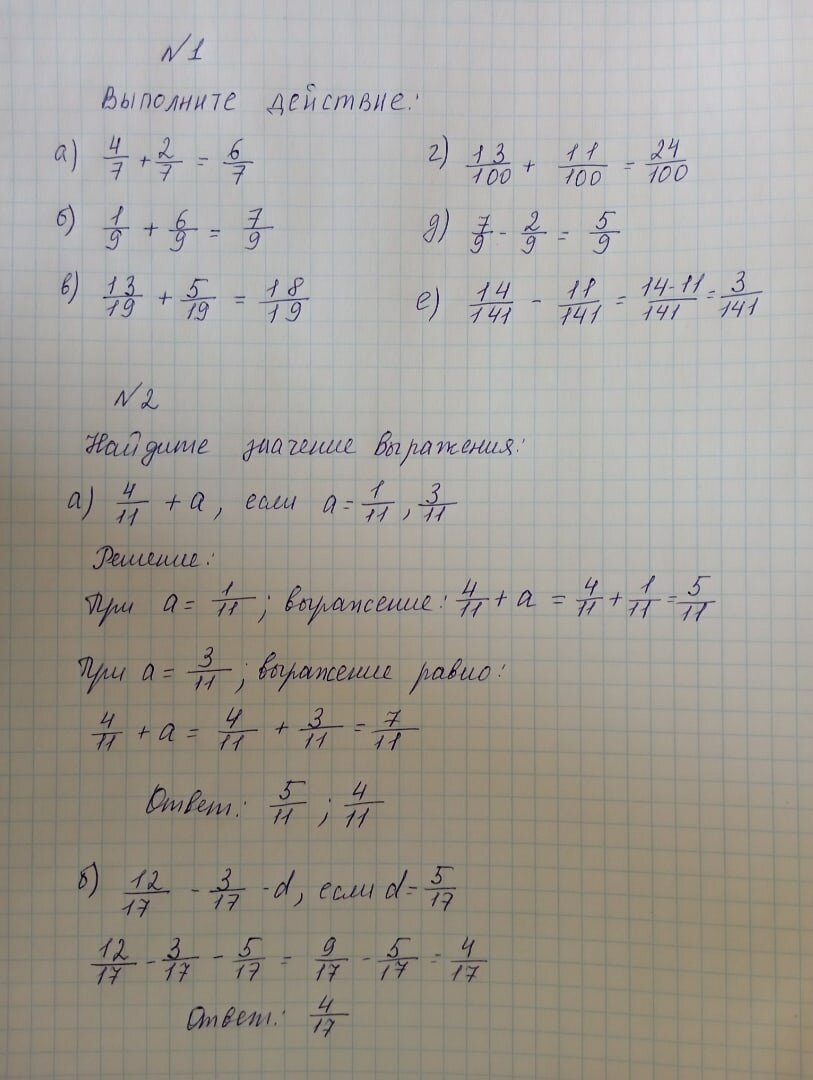 №1
Выполните действие:
а) 4/7 + 2/7 = 6/7
г) 13/100 + 11/100 = 24/100
б) 1/9 + 6/9 = 7/9
д) 7/9 - 2/9 = 5/9
в) 13/19 + 5/19 = 18/19
е) 14/141 - 11/141 = 14-11/141 = 3/141
№2
Найдите значение выражения:
а) 4/11 + a, если a = 1/11, 3/11
Решение:
При a = 1/11; выражение: 4/11 + a = 4/11 + 1/11 = 5/11
При a = 3/11; выражение равно:
4/11 + a = 4/11 + 3/11 = 7/11
Ответ: 5/11; 4/11
б) 12/17 - 3/17 - d, если d = 5/17
12/17 - 3/17 - 5/17 = 9/17 - 5/17 = 4/17
Ответ: 4/17